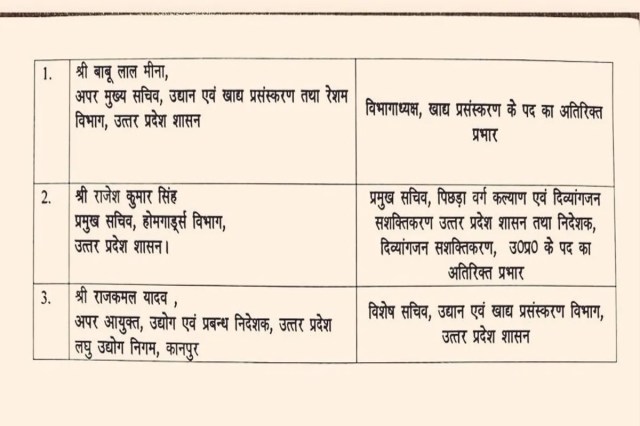 1.
श्री बाबू लाल मीना,
अपर मुख्य सचिव, उद्यान एवं खाद्य प्रसंस्करण तथा रेशम
विभाग, उत्तर प्रदेश शासन
विभागाध्यक्ष, खाद्य प्रसंस्करण के पद का अतिरिक्त
प्रभार
2.
श्री राजेश कुमार सिंह
प्रमुख सचिव, होमगार्ड्स विभाग,
उत्तर प्रदेश शासन।
प्रमुख सचिव, पिछड़ा वर्ग कल्याण एवं दिव्यांगजन
सशक्तिकरण उत्तर प्रदेश शासन तथा निदेशक,
दिव्यांगजन सशक्तिकरण, उ0प्र0 के पद का
अतिरिक्त प्रभार
3.
श्री राजकमल यादव ,
अपर आयुक्त, उद्योग एवं प्रबन्ध निदेशक, उत्तर प्रदेश
लघु उद्योग निगम, कानपुर
विशेष सचिव, उद्यान एवं खाद्य प्रसंस्करण विभाग,
उत्तर प्रदेश शासन